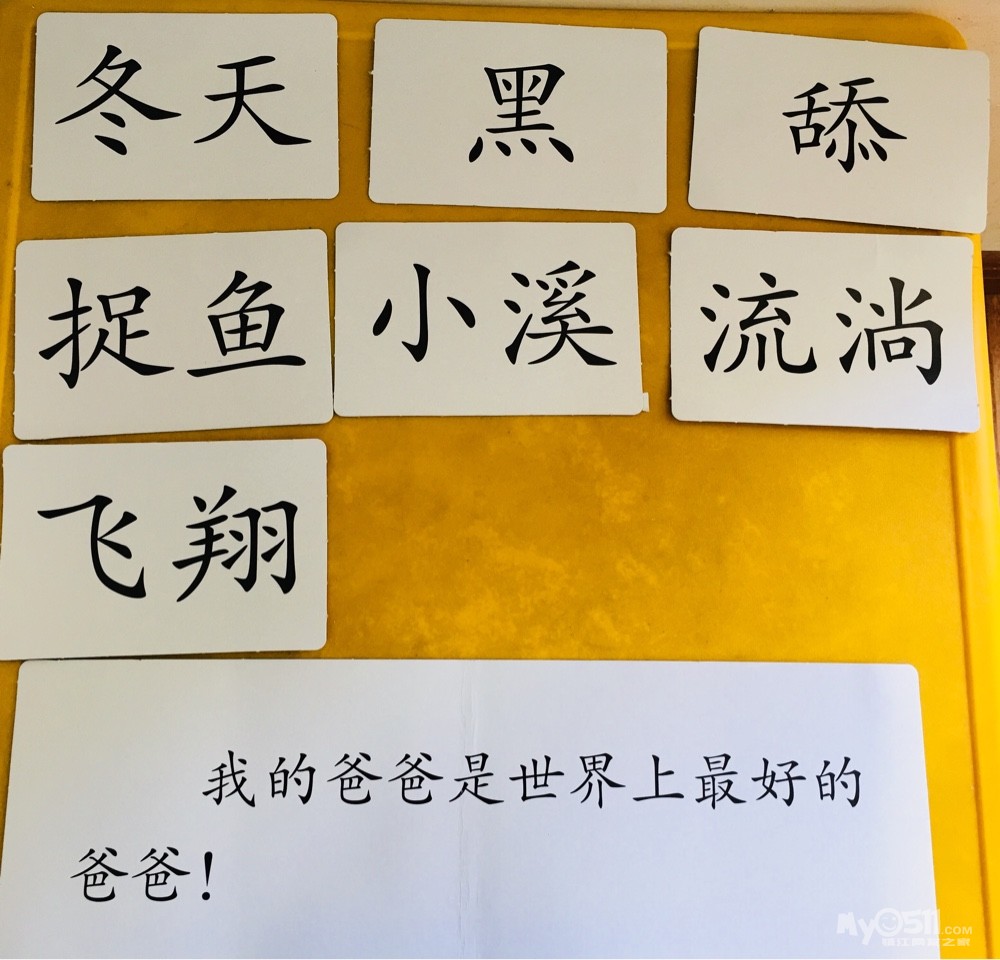 冬天 黑 舔
捉鱼 小溪 流淌
飞翔
我的爸爸是世界上最好的
爸爸！
My0511.COM